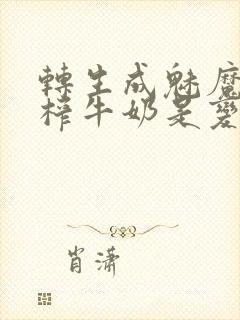 轉生成魅魔
榨牛奶是變
肖瀟